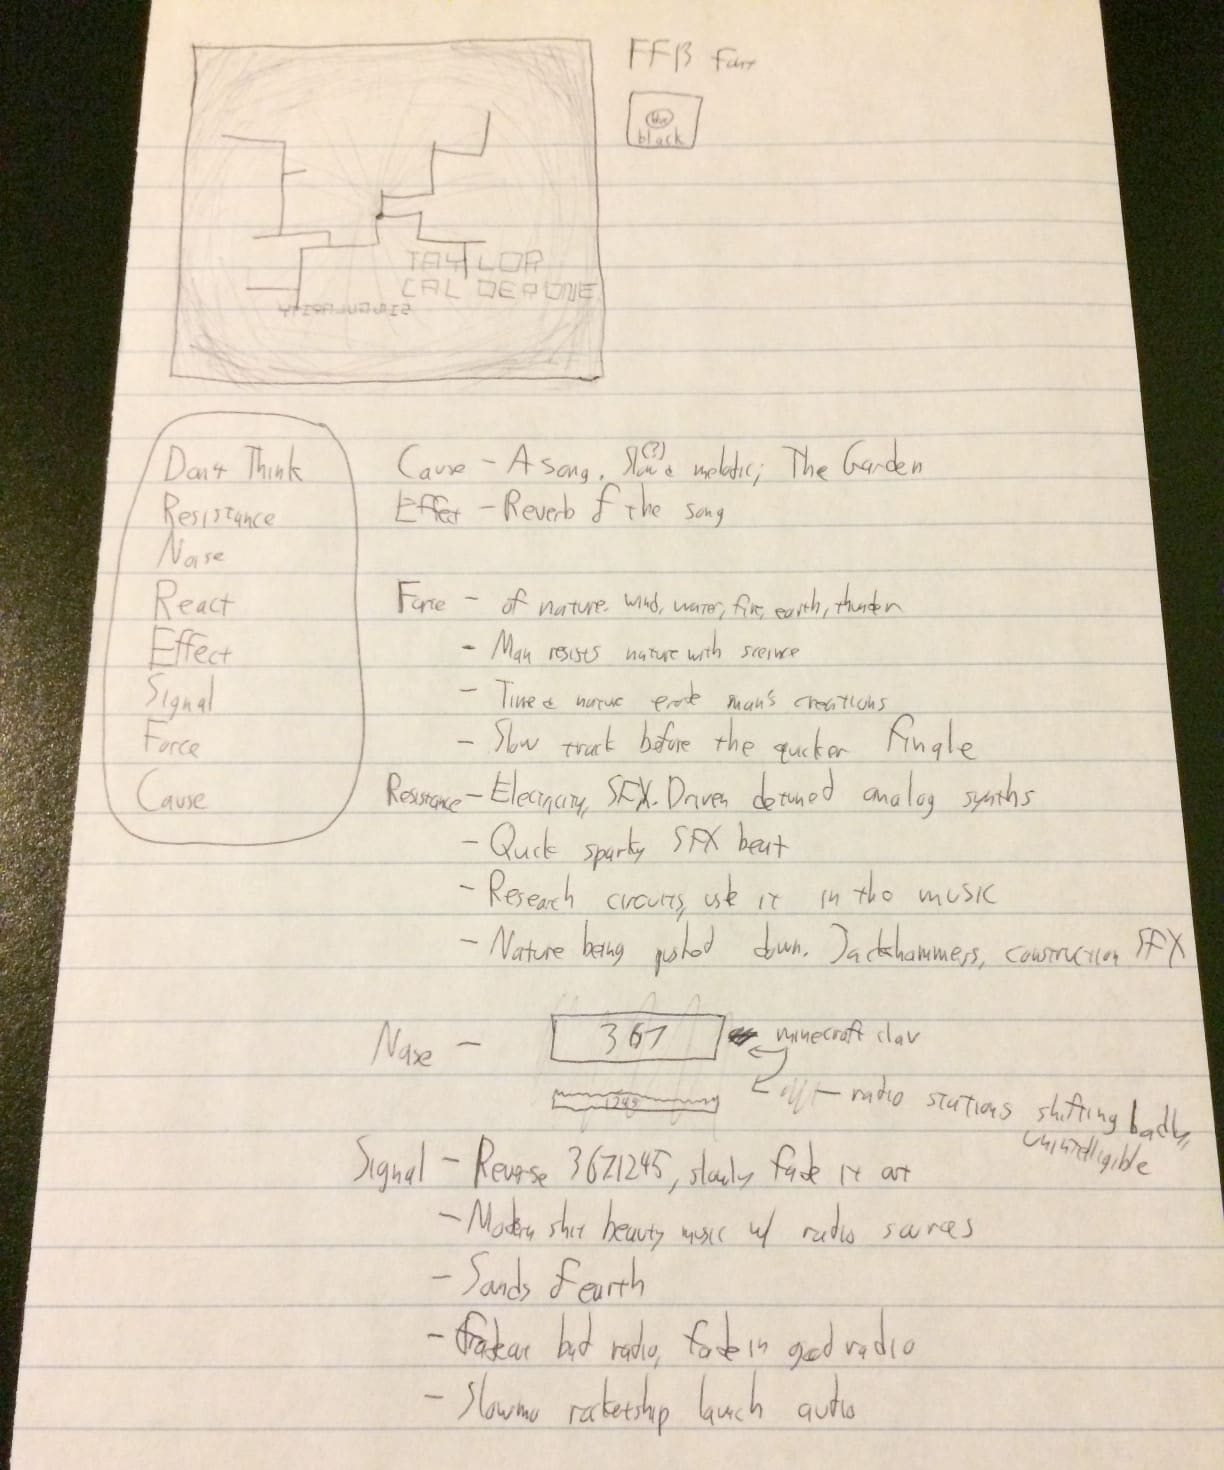 FFB Font
the
black
TAYLOR
CALDERONE
SINGULARITY
Don't Think
Resistance
Noise
React
Effect
Signal
Force
Cause
Cause - A song. Slow(?) & melodic; The Garden
Effect - Reverb of the song
Force - of nature. wind, water, fire, earth, thunder
- Man resists nature with science
- Time & nature erode man's creations
- Slow track before the quicker fingle
Resistance - Electricity, SFX. Driven detuned analog synths
- Quick sparky SFX beat
- Research circuits, use it in the music
- Nature being pushed down. Jackhammers, construction SFX
Noise - 367 minecraft clav
1245 - radio stations shifting badly,
unintelligible
Signal - Reverse 3671245, slowly fade it out
- Modern shit beauty music w/ radio sources
- Sands of earth
- Fade out bad radio, fade in good radio
- Slowmo rocketship launch audio